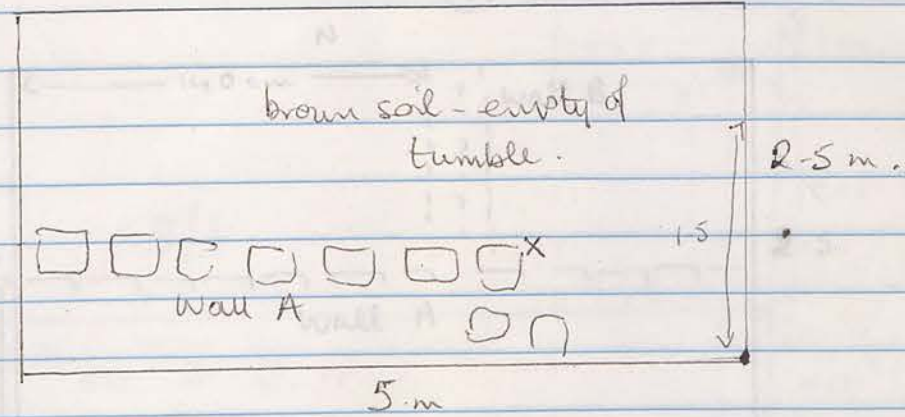 brown soil - empty of
tumble.
2.5 m.
1.5
x
Wall A
5 m